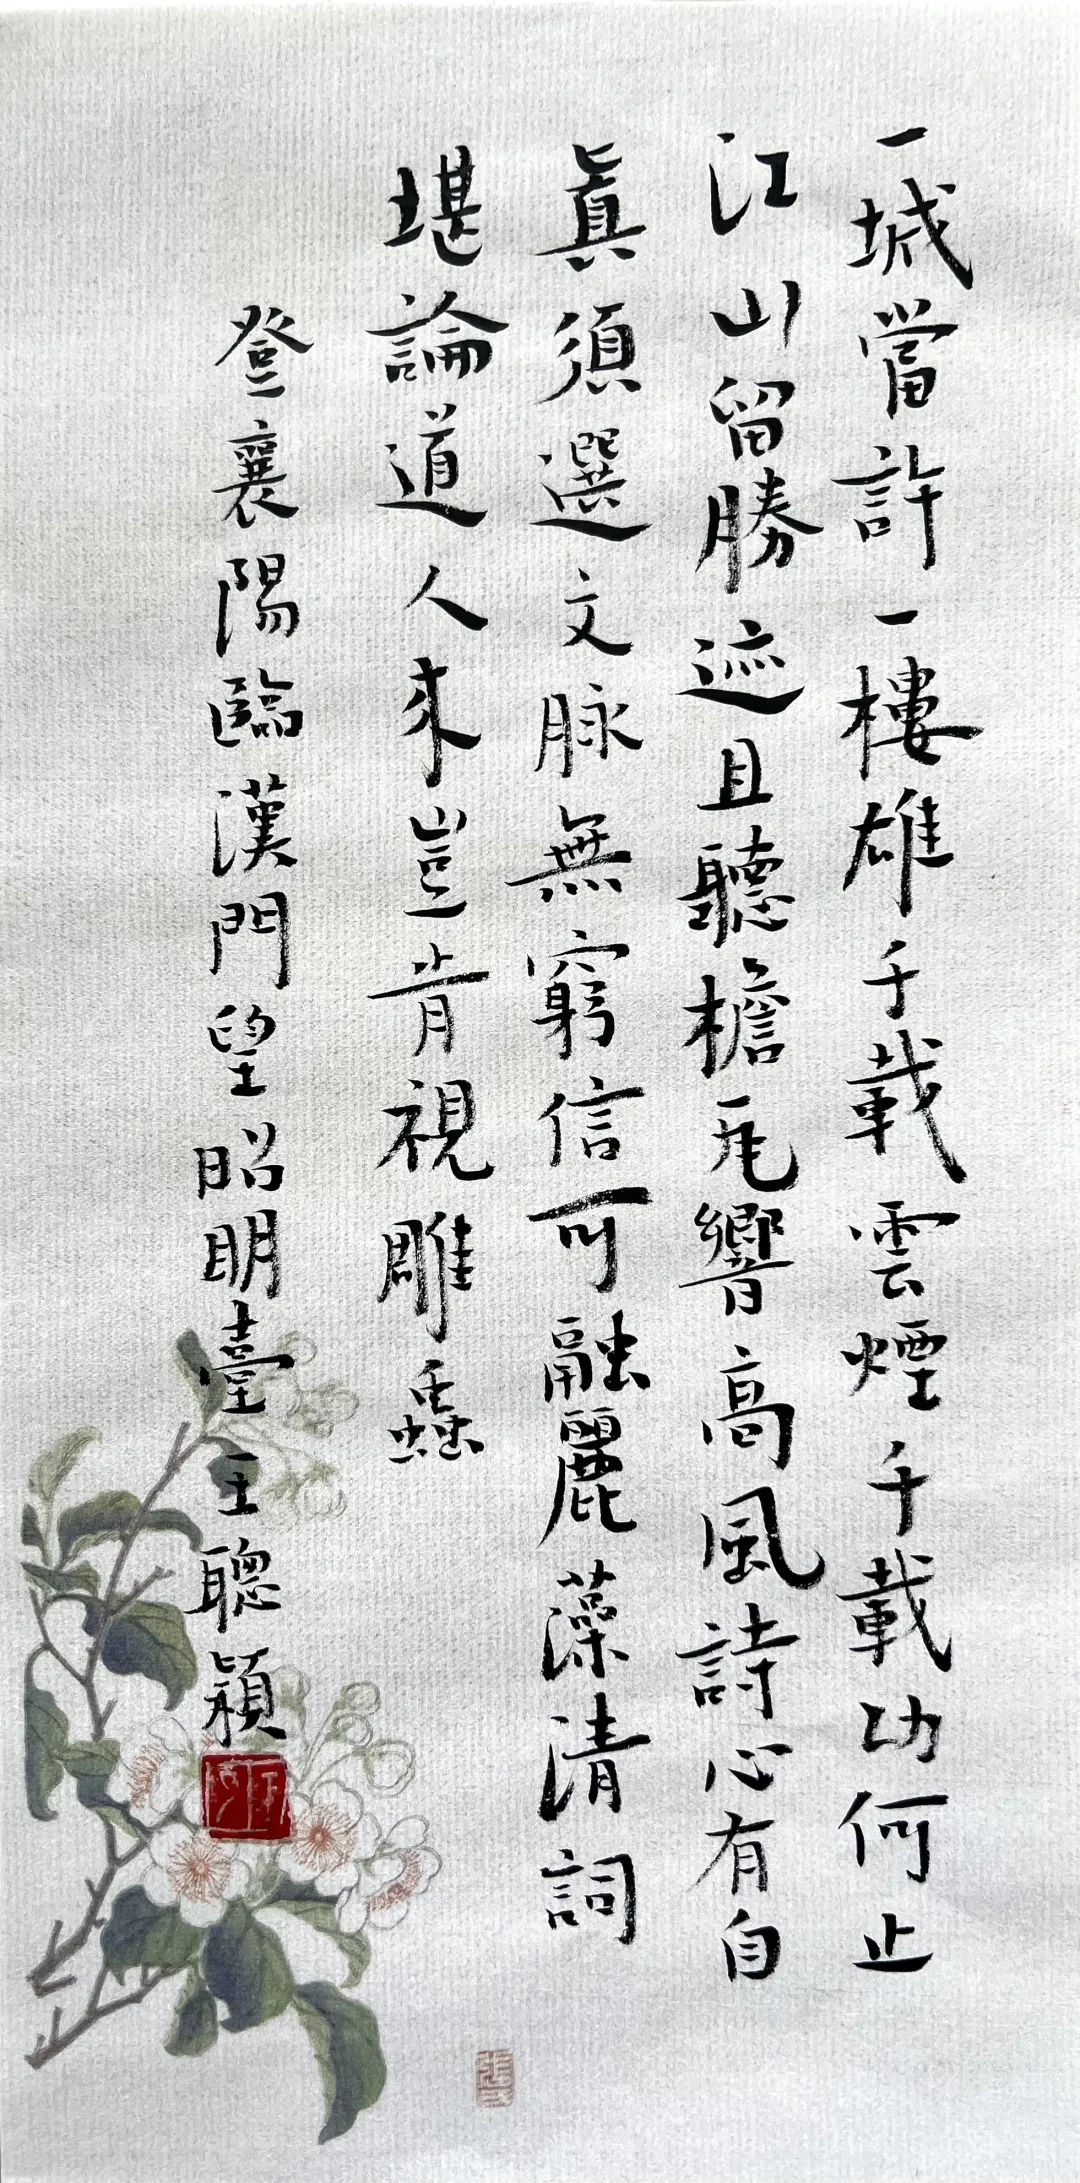 一城當許一樓雄千載雲煙千載功何止
江山留勝迹且聽檐瓦響高風詩心有自
眞須選文脉無窮信可融麗藻清詞
堪論道人來豈肯視雕蟲
登襄陽臨漢門望昭明臺王聰穎